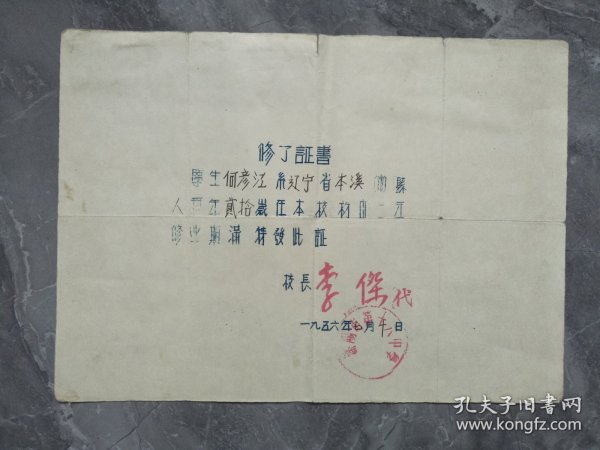 修了証書
學生何彥江系辽宁省本溪 縣
人 年貳拾歲在本校 二年
修业期滿特發此証
校長 李傑代
一九五六年七月 日
孔夫子旧书网
www.kongfz.com